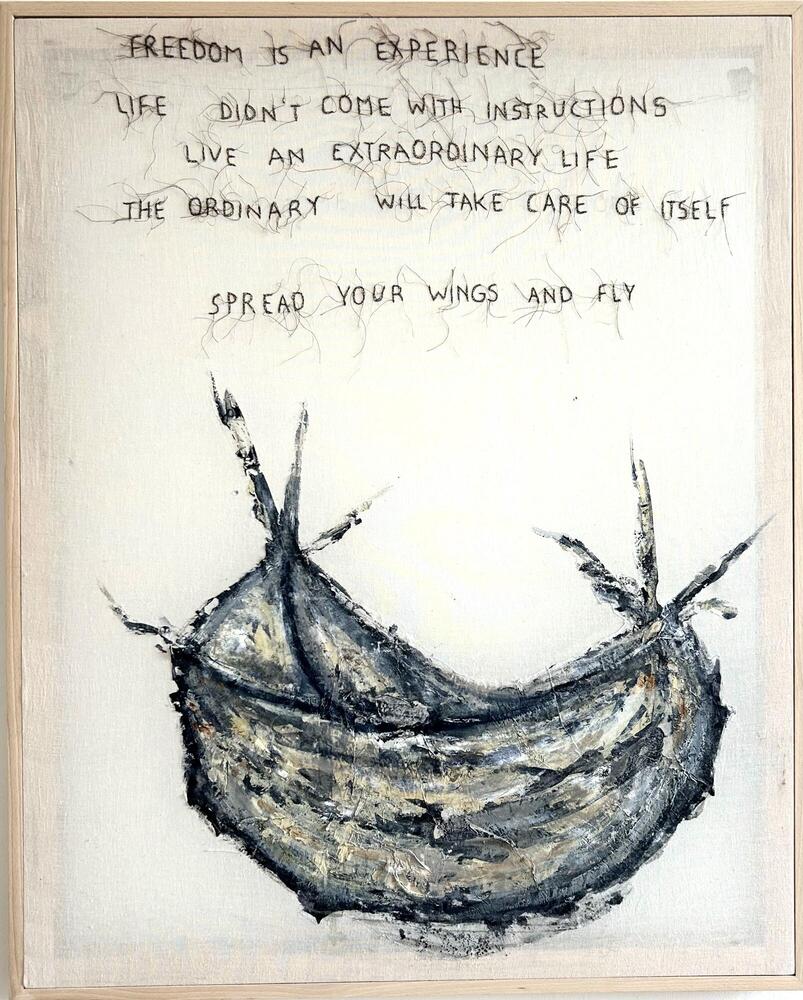 FREEDOM IS AN EXPERIENCE
LIFE DIDN'T COME WITH INSTRUCTIONS
LIVE AN EXTRAORDINARY LIFE
THE ORDINARY WILL TAKE CARE OF ITSELF
SPREAD YOUR WINGS AND FLY